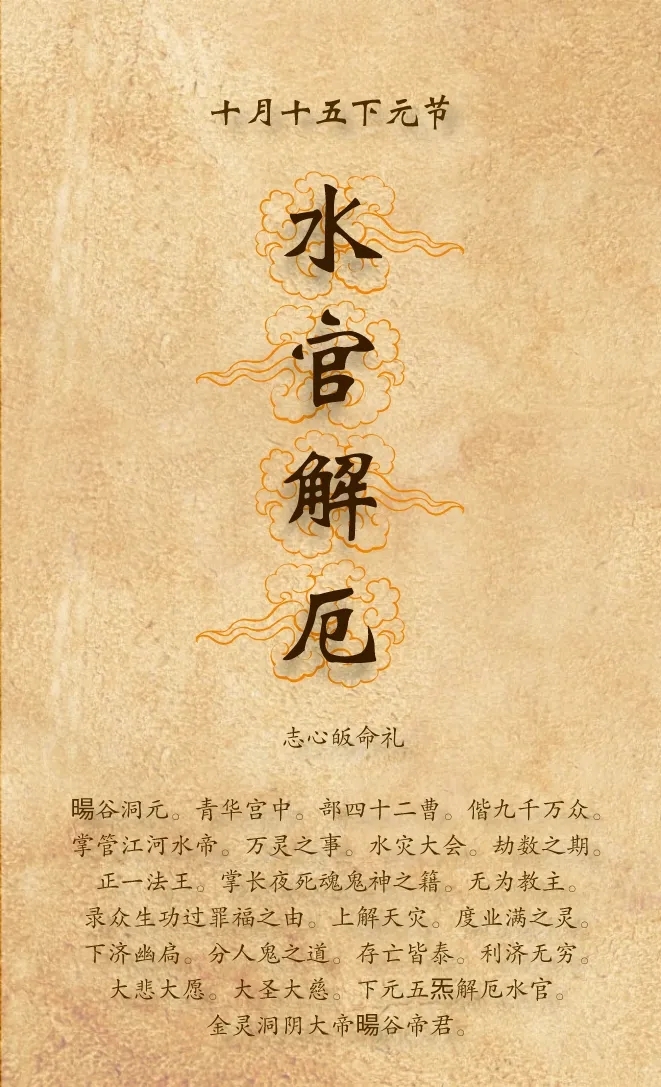 十月十五下元节
水
官
解
厄
志心皈命礼
暘谷洞元。青华宫中。部四十二曹。偕九千万众。
掌管江河水帝。万灵之事。水灾大会。劫数之期。
正一法王。掌长夜死魂鬼神之籍。无为教主。
录众生功过罪福之由。上解天灾。度业满之灵。
下济幽扃。分人鬼之道。存亡皆泰。利济无穷。
大悲大愿。大圣大慈。下元五炁解厄水官。
金灵洞阴大帝暘谷帝君。